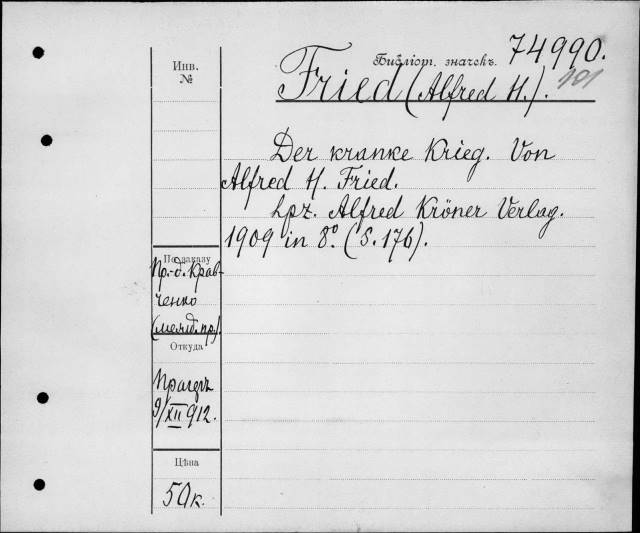 Инв.
№
Библіот. значекъ. 74990.
101
Fried (Alfred H.).
Der kranke Krieg. Von
Alfred H. Fried.
Lpz. Alfred Kröner Verlag.
1909 in 8° (S. 176).
По заказу
Пр.-д. Крав-
ченко
Откуда
9/XII 912.
Цѣна
50 к.